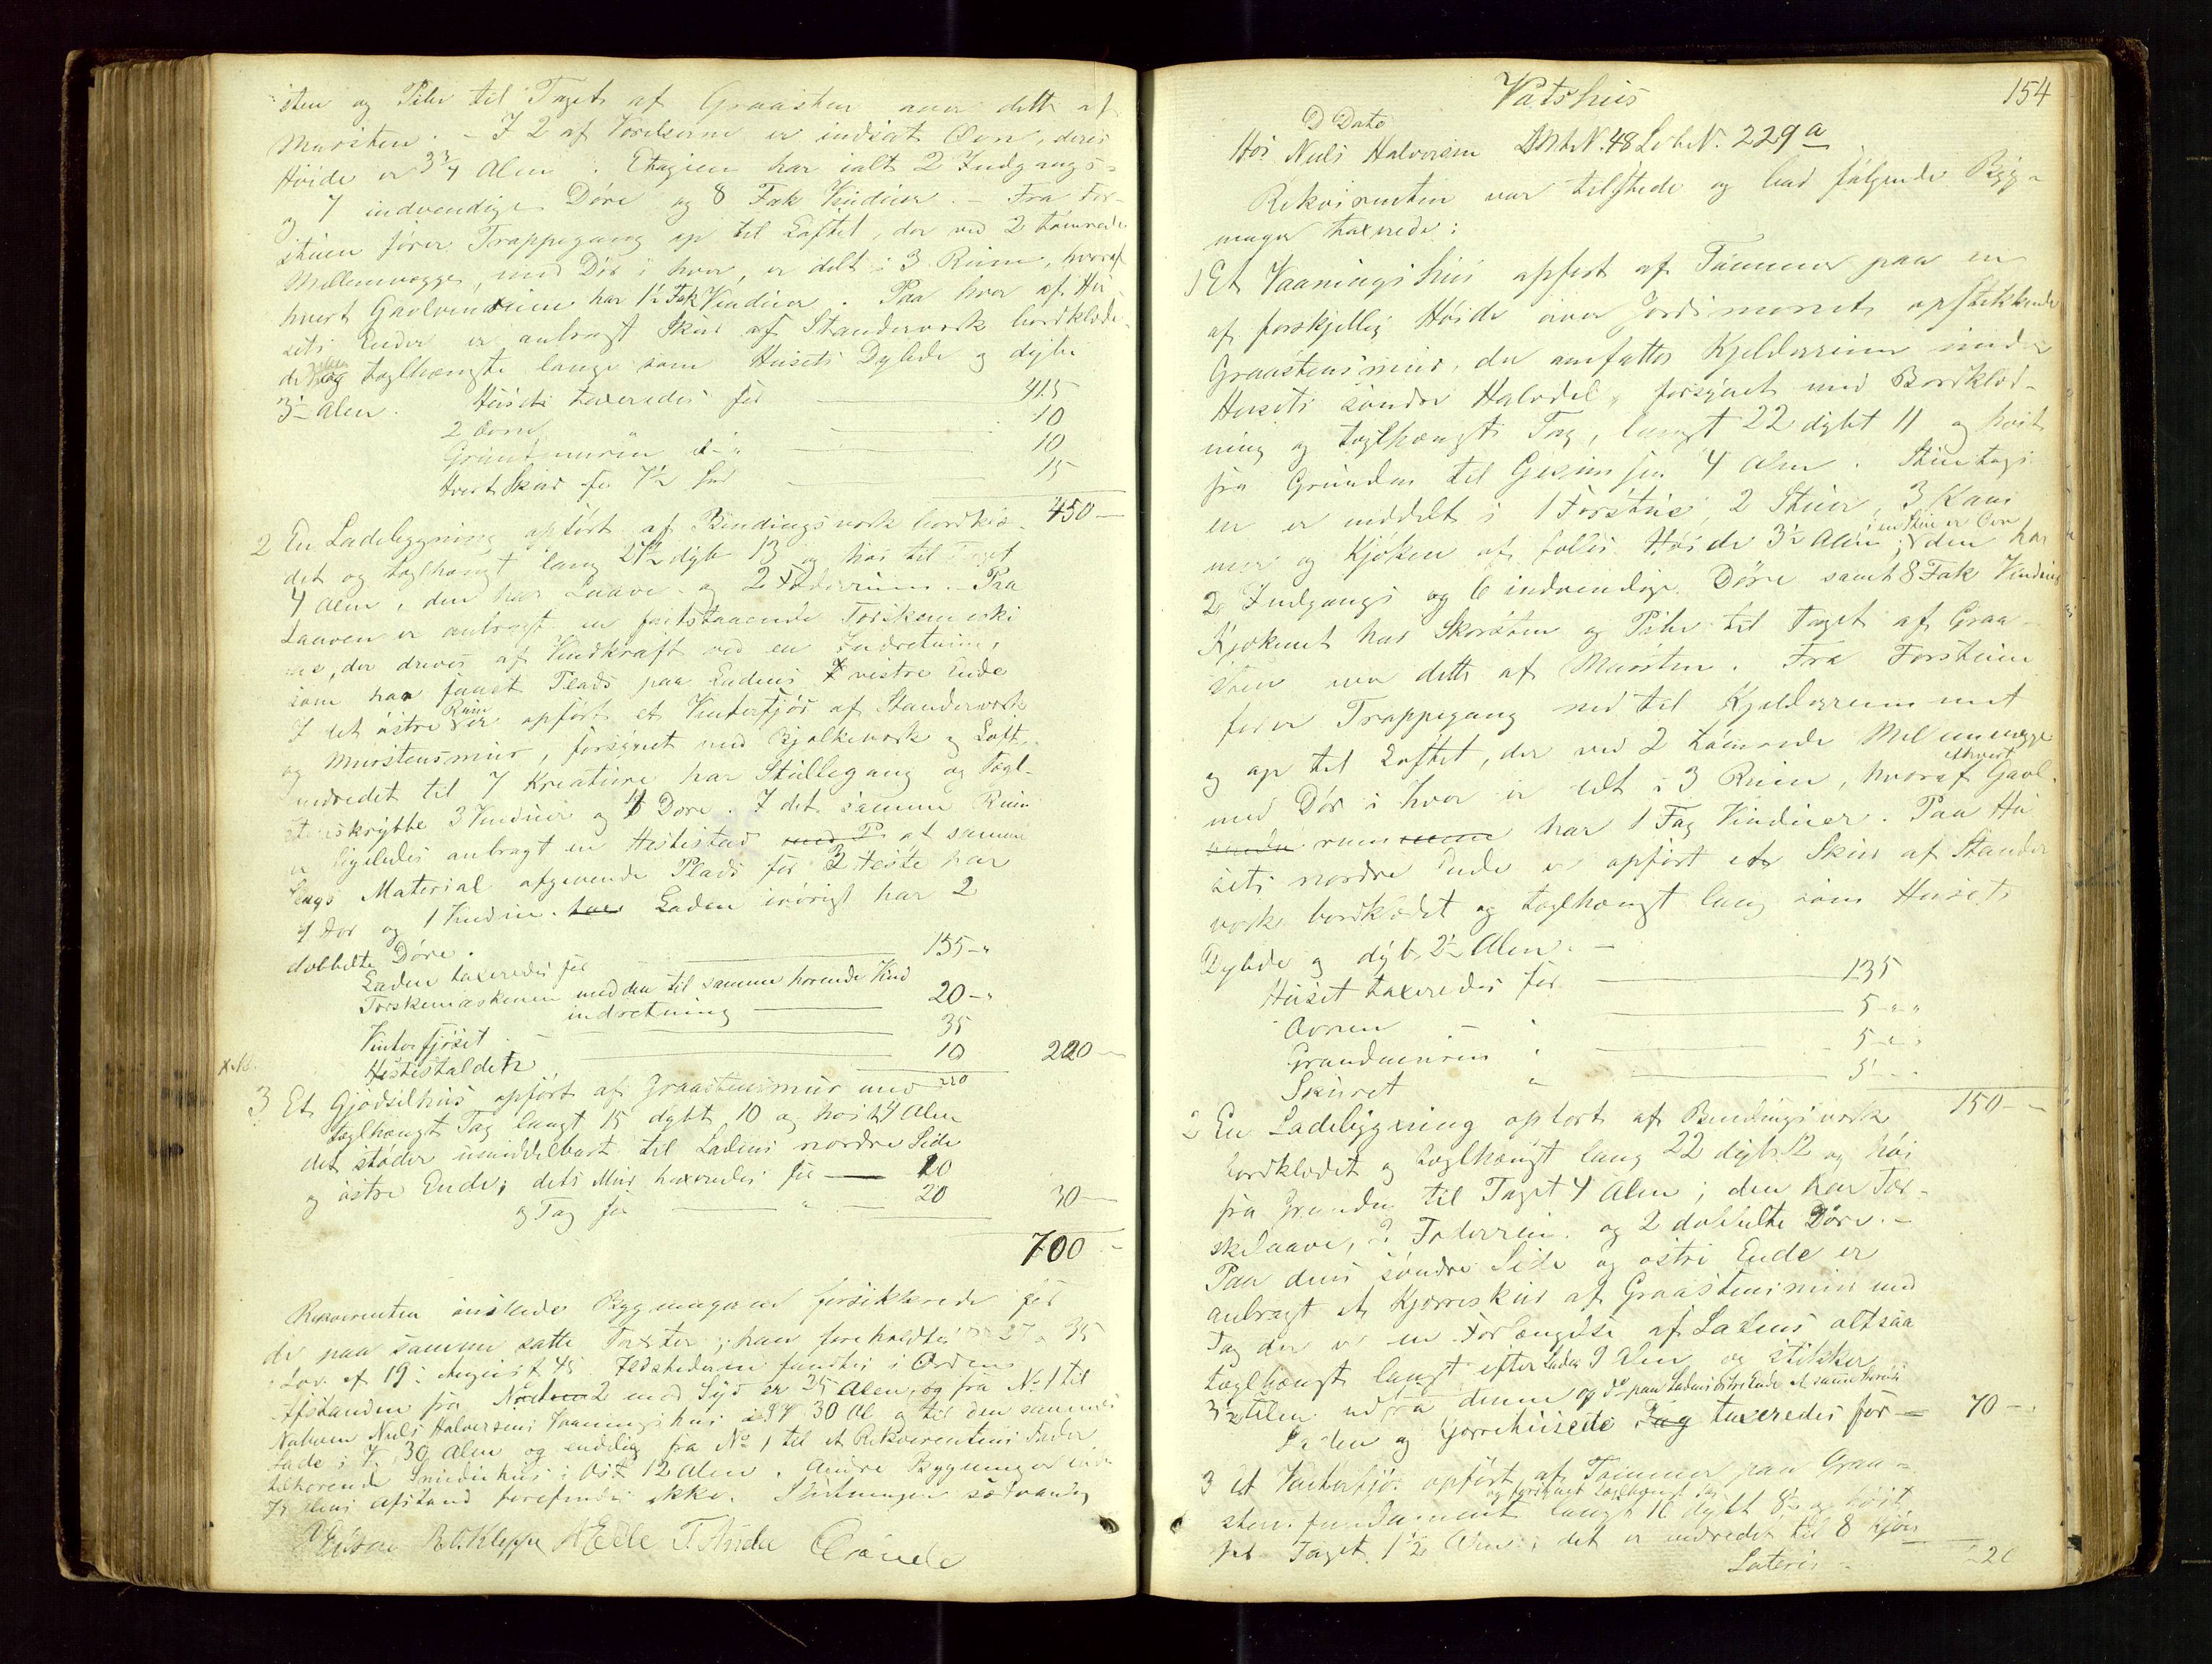 sten og Pibe til Taget af Graasten over dette af
Mursten. - I 2 af Værelserne er indsat Ovn, deres
Høide er 3 3/4 Alen. Etagien har ialt 2 Indgangs-
og 7 indvendige Døre og 8 Fak Vinduer. - Fra For-
stuen fører Trappegang op til Loftet, der ved 2 tømrede
Mellemvægge, med Dør i hver, er delt i 3 Rum, hvoraf
hvert Gavlrum har 1½ Fak Vinduer. Paa hver af Hu-
sets Ender er anbragt Skur af Standerværk bordklæde-
de og taglhængte lange som Husets Dybde og dybe
3½ Alen. Huset taxeredes for 415
2 Ovne " 10
Grundmuren " 10
Hvert Skur for 7½ Spd 15
450 -
2 En Ladebygning opført af Bindingsværk bordklæ-
det og taglhængt lang 27½ dyb 13 og høi til Taget
4 Alen, den har Laave og 2 Foderrum. - Paa
Laaven er anbragt en fritstaaende Tærskemaski-
ne, der drives af Vindkraft ved en Indretning,
som har faaet Plads paa Ladens vestre Ende
I det østre Rum er opført et Vinterfjøs af Standerværk
og Murstensmur, forsynet med Bjelkeværk og Loft,
indredet til 7 Kreature har Stillegang og Tægl-
stenskrybbe 3 Vinduer og 1 Døre. I det samme Rum
er ligeledes anbragt en Hestestad med P af samme
Slags Material afgivende Plads for 2 Heste har
1 Dør og 1 Vindue. har Laden iøvrigt har 2
dobbelte Døre.
Laden taxeredes for 155 - "
Tærskemaskinen med den til samme hørende Vind
indretning 20 - "
Vinterfjøset 35
Hestestalden 10 220 -
220
3 Et Gjødselhus opført af Graastensmur med
taglhængt Tag langt 15 dybt 10 og høit 4 Alen
det støder umiddelbart til Ladens nordre Side
og østre Ende; dets Mur taxeredes for 10
og Tag for " 20 30 -
700 -
Rekvirenten ønskede Bygningerne forsikkrede for
de paa samme satte Taxter; han foreholdtes 27 & 35
i Lov af 19: August 45. Ildstederne fandtes i Orden
Afstanden fra No 2 mod Syd er 25 Alen, og fra No 1 til
Naboen Niels Halvorsens Vaaningshus i SV 30 Al og til den sammes
Lade i V 30 Alen og endelig fra No 1 til et Rekvirentens Fader
tilhørende Smidiehus i Øst 12 Alen. Andre Bygninger inden
75 Alens Afstand forefindes ikke. Slutningen sædvanlig
R.O. Kleppe
154
Vatshus
D Dato
Hos Niels Halvorsen Mt. N. 48 Løb N. 229 a
Rekvirenten var tilstede og bad følgende Byg-
ninger taxerede:
1 Et Vaaningshus opført af Tømmer paa en
af forskjellig Høide over Jordsmonnet opstikkende
Graastensmur, der omfatter Kjelderrum under
Husets søndre Halvdel, forsynet med Bordklæd-
ning og taglhængt Tag, langt 22 dybt 11 og høit
fra Grunden til Gesimsen 4 Alen. Stueetagi-
en er inddelt i 1 Forstue, 2 Stuer, 3 Kam
mere og Kjøkken af fælles Høide 3½ Alen; i en Stue er Ovn, den har
2 Indgangs og 6 indvendige Døre samt 8 Fak Vinduer
Kjøkkenet har Skorsten og Pibe til Taget af Graa-
sten over dette af Mursten. Fra Forstuen
fører Trappegang ned til Kjelderrummet
og op til Loftet, der ved 2 tømrede Mellemvægge
med Dør i hver er delt i 3 Rum, hvoraf ethvert Gavl-
rum har 1 Fag Vinduer. Paa Hu-
sets nordre Ende er opført et Skur af Stander
værk bordklædet og taglhængt lang som Husets
Dybde og dyb 2½ Alen. -
Huset taxeredes for 135
Ovnen " 5 - "
Grundmuren " 5 - "
Skuret " 5 - "
150 -
2 En Ladebygning opført af Bindingsværk
bordklædet og taglhængt lang 22 dyb 12 og høi
fra Grunden til Taget 4 Alen; den har Tær-
skelaave, 2 Foderrum og 2 dobbelte Døre. -
Paa dens søndre Side og østre Ende er
anbragt et Kjørreskur af Graastensmur med
Tag der er en Forlængelse af Ladens altsaa
taglhængt langt efter Laden 9 Alen og stikker
3½ Alen ud fra denne og do paa Ladens østre Ende af samme
Laden og Kjørrehusets Tag taxeredes for 70 -
3 Et Vinterfjøs opført af Tømmer paa Graa-
og forsynet taglhængt Tag
stensfundament langt 16 dybt 8½ og høit
til Taget 1½ Alen; det er indredet til 8 Kjør
Lateris 220